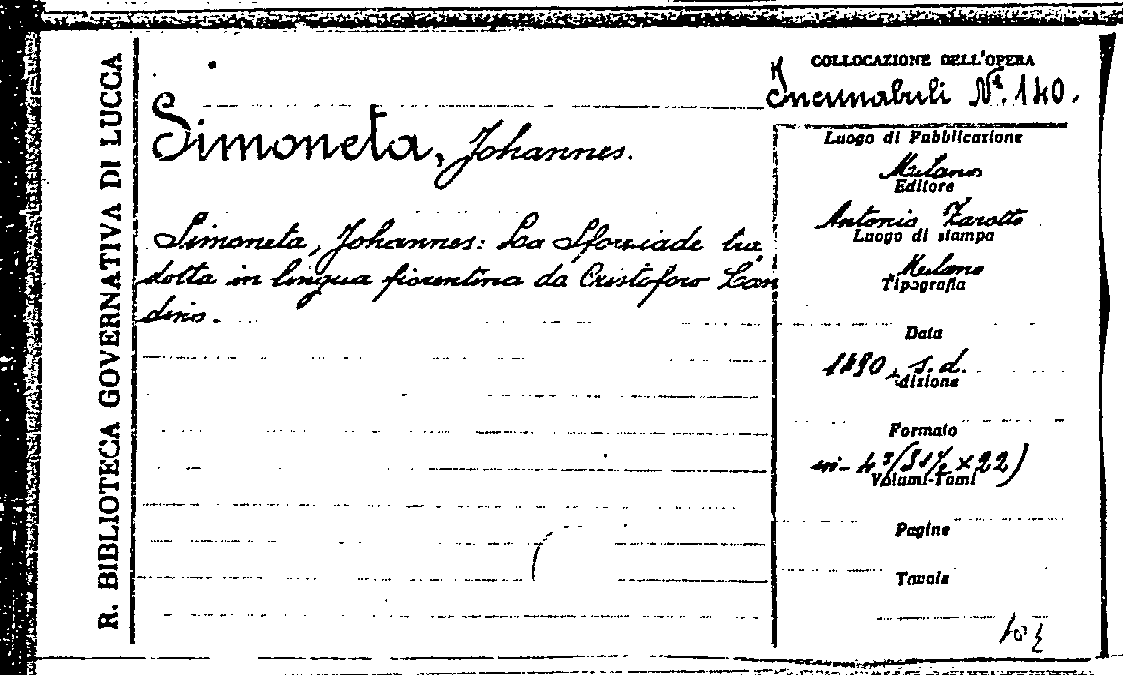 R. BIBLIOTECA GOVERNATIVA DI LUCCA
COLLOCAZIONE DELL'OPERA
Incunabuli Nº. 140.
Simoneta, Johannes.
Simoneta, Johannes: La Sforziade tra
dotta in lingua fiorentina da Cristoforo Lan
dino.
Luogo di Pubblicazione
Milano
Editore
Antonio Zarotto
Luogo di stampa
Milano
Tipografia
Data
1490, s.d.
Edizione
Formato
in-4º (31½ × 22)
Volumi-Tomi
Pagine
Tavole